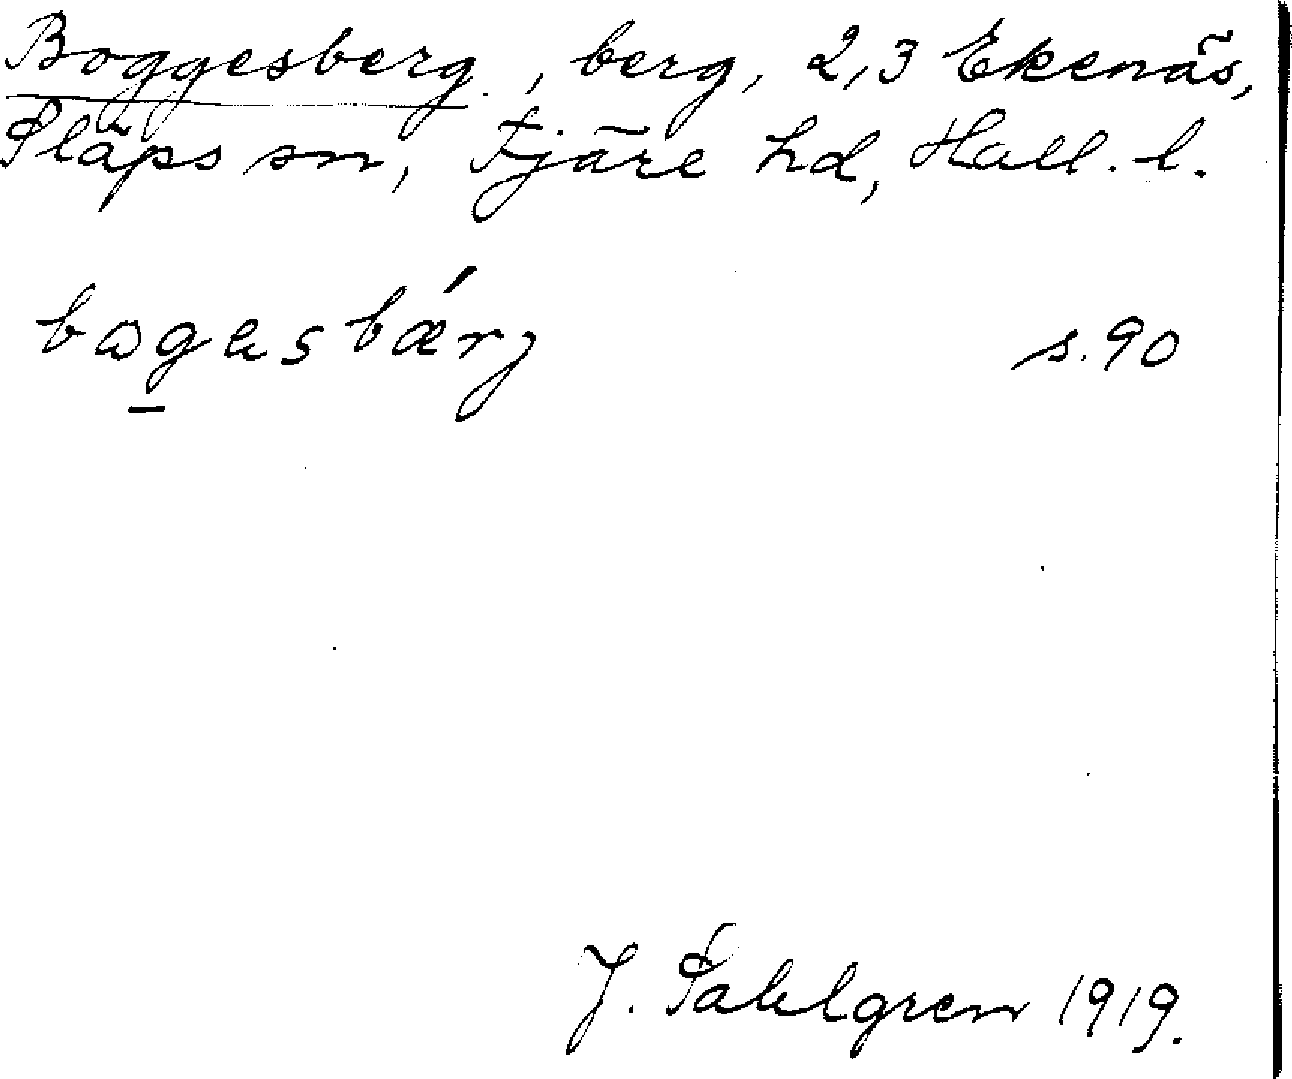 Boggesberg, berg, 2,3 Ekenäs,
Släps sn, Fjäre hd, Hall. l.
bog̲asbǽrj s.90
J. Sahlgren 1919.